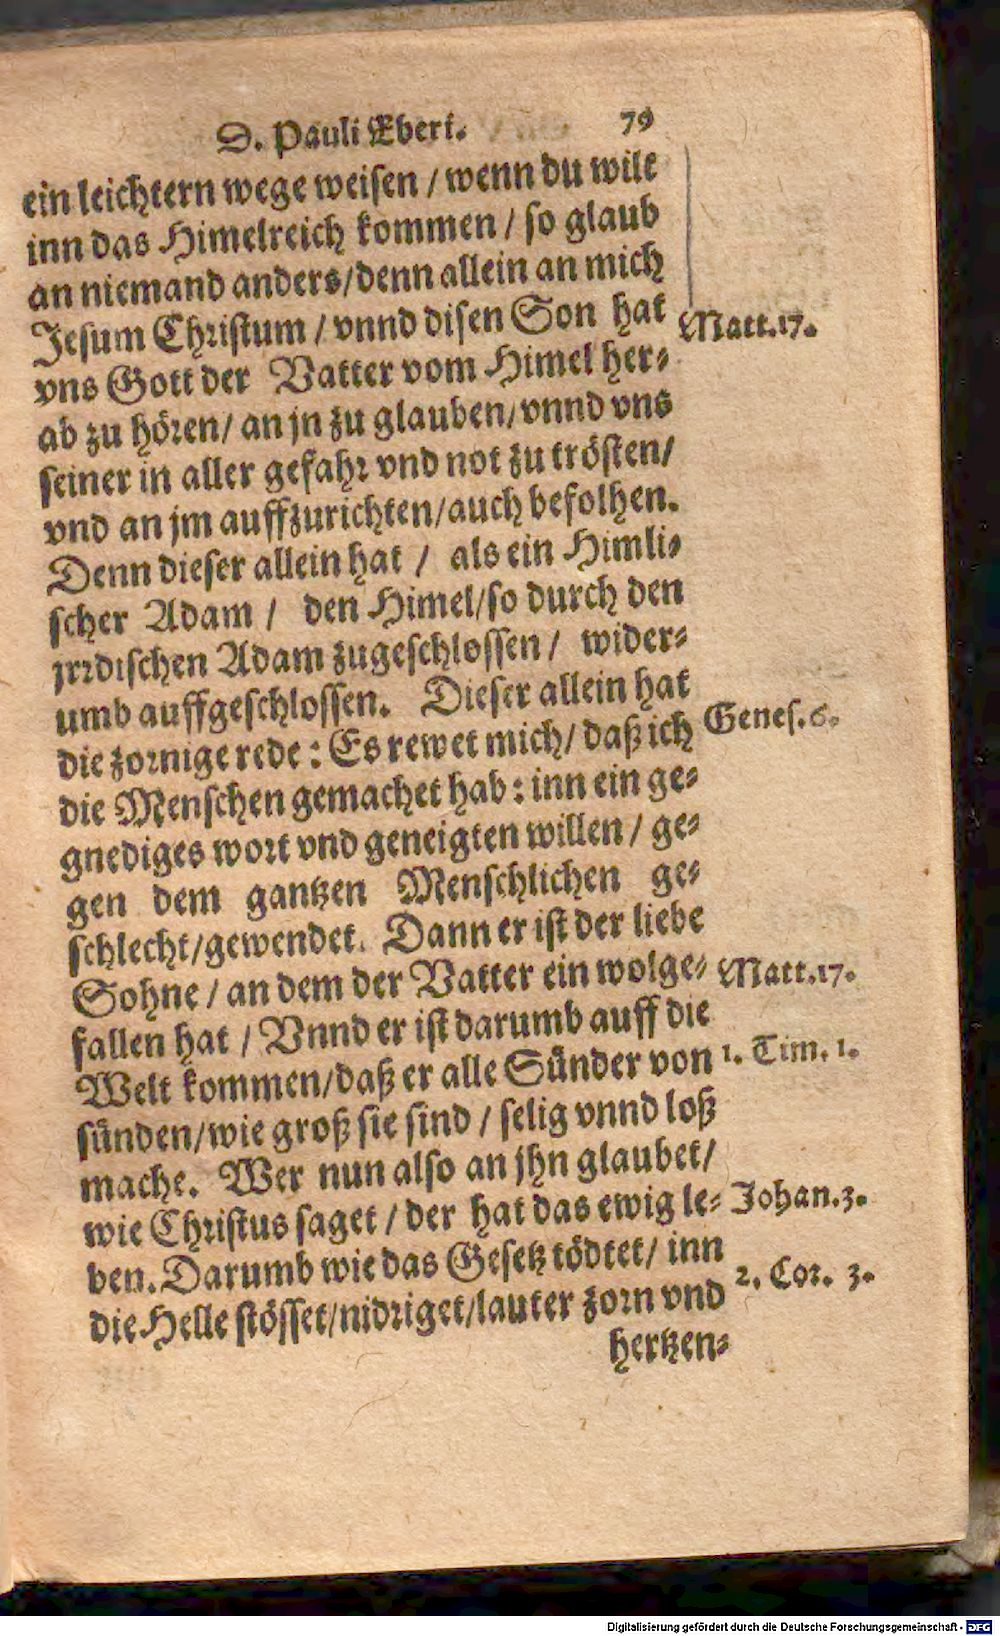 D. Pauli Eberi. 79
ein leichtern wege weisen / wenn du wilt
inn das Himelreich kommen / so glaub
an niemand anders / denn allein an mich
Jesum Christum / vnnd disen Son hat Matt.17.
vns Gott der Vatter vom Himel her⸗
ab zu hören / an jn zu glauben / vnnd vns
seiner in aller gefahr vnd not zu trösten /
vnd an jm auffzurichten / auch befolhen.
Denn dieser allein hat / als ein Himli⸗
scher Adam / den Himel / so durch den
jrrdischen Adam zugeschlossen / wider⸗
umb auffgeschlossen. Dieser allein hat
die zornige rede : Es rewet mich / daß ich Genes.6.
die Menschen gemachet hab : inn ein ge⸗
gnediges wort vnd geneigten willen / ge⸗
gen dem gantzen Menschlichen ge⸗
schlecht / gewendet. Dann er ist der liebe
Sohne / an dem der Vatter ein wolge⸗ Matt.17.
fallen hat / Vnnd er ist darumb auff die
Welt kommen / daß er alle Sünder von 1. Tim. 1.
sünden / wie groß sie sind / selig vnnd loß
mache. Wer nun also an jhn glaubet /
wie Christus saget / der hat das ewig le⸗ Johan.3.
ben. Darumb wie das Gesetz tödtet / inn
die Helle stösset / nidriget / lauter zorn vnd 2. Cor. 3.
hertzen⸗
Digitalisierung gefördert durch die Deutsche Forschungsgemeinschaft - DFG